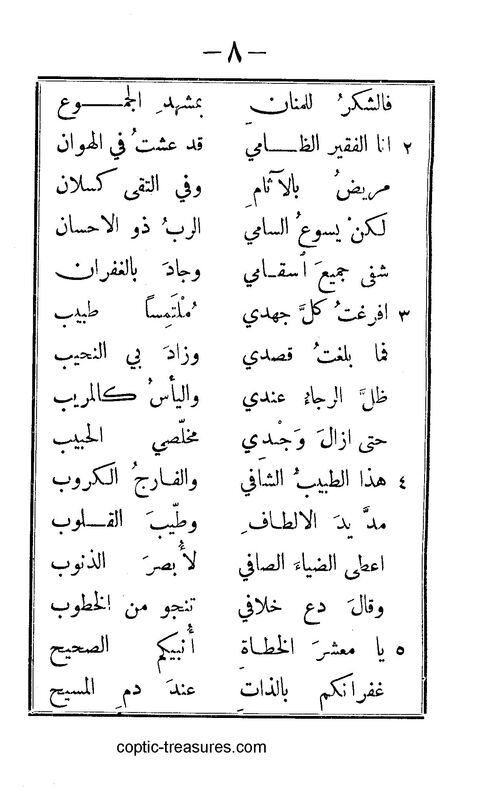 -٨-
فالشكرُ للمنانِ بمشهدِ الجموع
٢ انا الفقير الظامي قد عشتُ في الهوان
مريضُ بالآثامِ وفي التقى كسلان
لكنْ يسوعُ السامي الربُ ذو الاحسان
شفى جميعَ أسقامي وجادَ بالغفران
٣ افرغتُ كلَّ جهدي مُلْتَمِساً طبيب
فما بلغتُ قصدي وزادَ بي النحيب
ظلَّ الرجاءُ عندي واليأسُ كالمريب
حتى ازالَ وَجْدِي مخلّصي الحبيب
٤ هذا الطبيبُ الشافي والفارجُ الكروب
مدَّ يدَ الالطافِ وطيّبَ القلوب
اعطى الضياءَ الصافي لأُبصرَ الذنوب
وقالَ دع خلافي تنجو من الخطوب
٥ يا معشرَ الخطاةِ أُنبيكم الصحيح
غفرانكم بالذاتِ عندَ دمِ المسيح
coptic-treasures.com